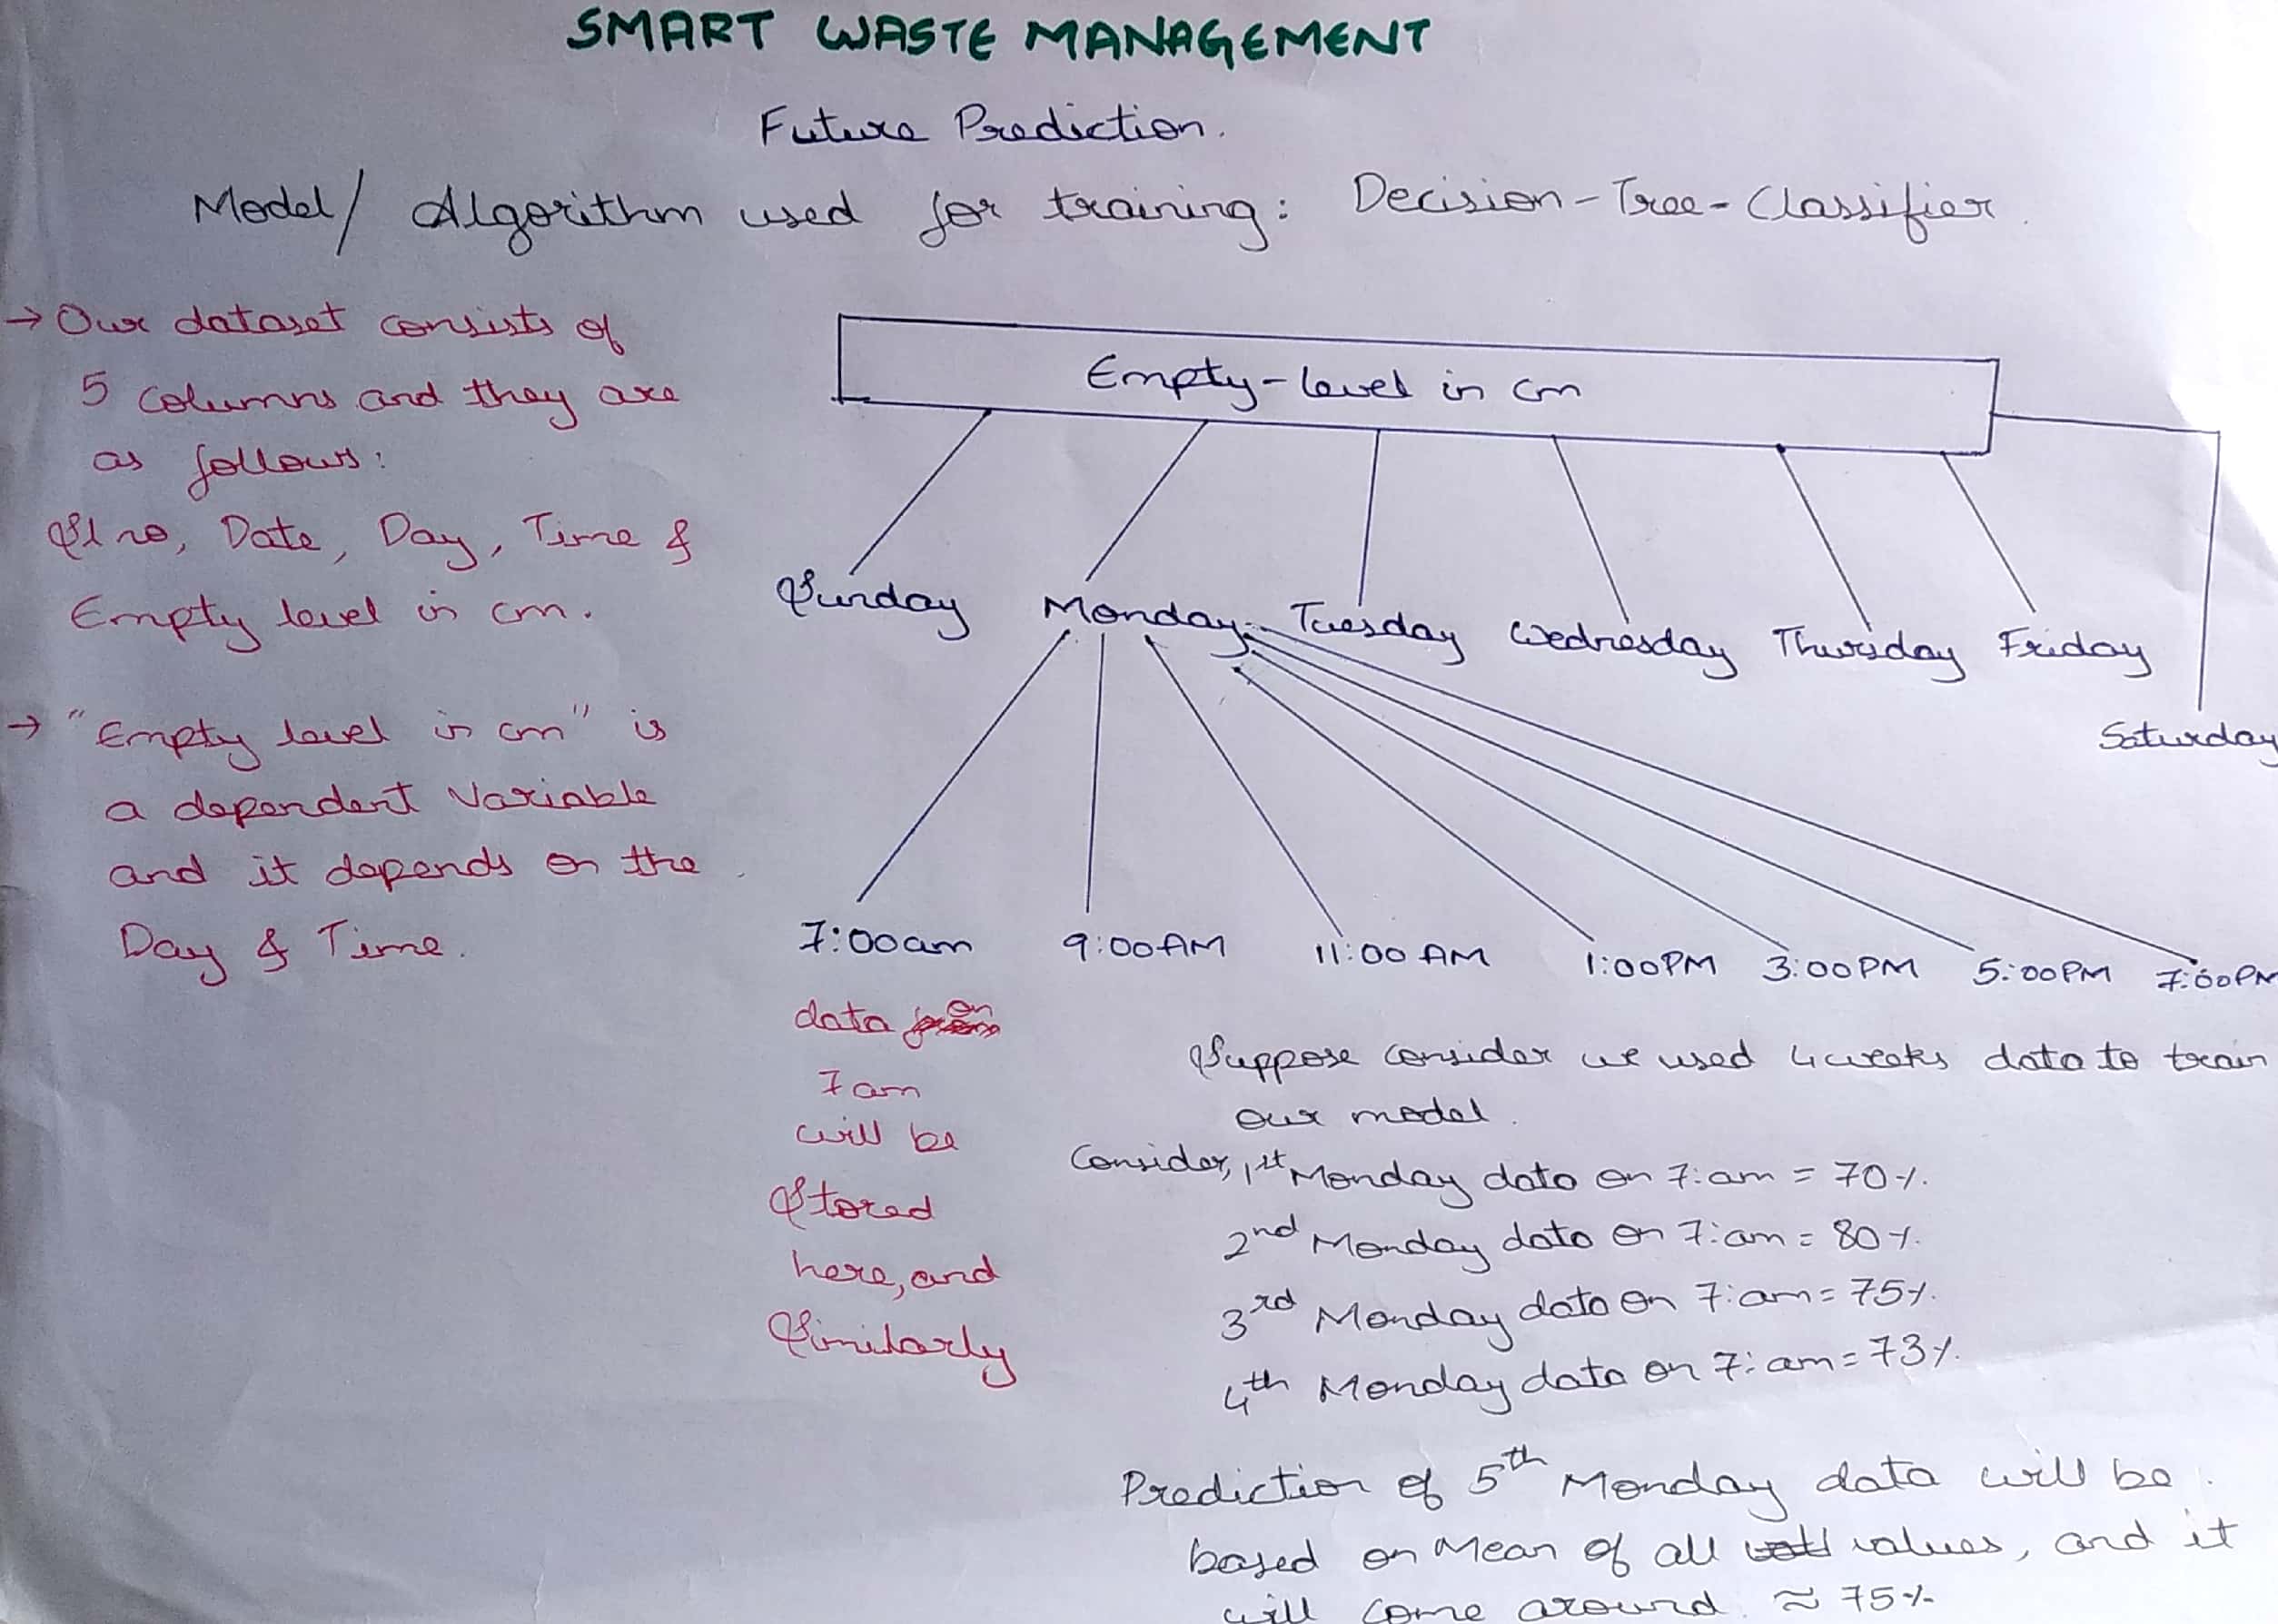 SMART WASTE MANAGEMENT
Future Prediction.
Model/ Algorithm used for training: Decision-Tree-Classifier.
→ Our dataset consists of
5 columns and they are
as follows:
Sl no, Date, Day, Time &
Empty level in cm.
→ "Empty level in cm" is
a dependent variable
and it depends on the
Day & Time.
Empty-level in cm
Sunday Monday Tuesday Wednesday Thursday Friday
Saturday
7:00am 9:00AM 11:00 AM 1:00PM 3:00PM 5:00PM 7:00PM
data on
7am
will be
Stored
here, and
Similarly
Suppose consider we used 4 weeks data to train
our model.
Consider, 1st Monday data on 7:am = 70%.
2nd Monday data on 7:am = 80%.
3rd Monday data on 7:am = 75%.
4th Monday data on 7:am = 73%.
Prediction of 5th Monday data will be
based on Mean of all values, and it
will come around ≈ 75%